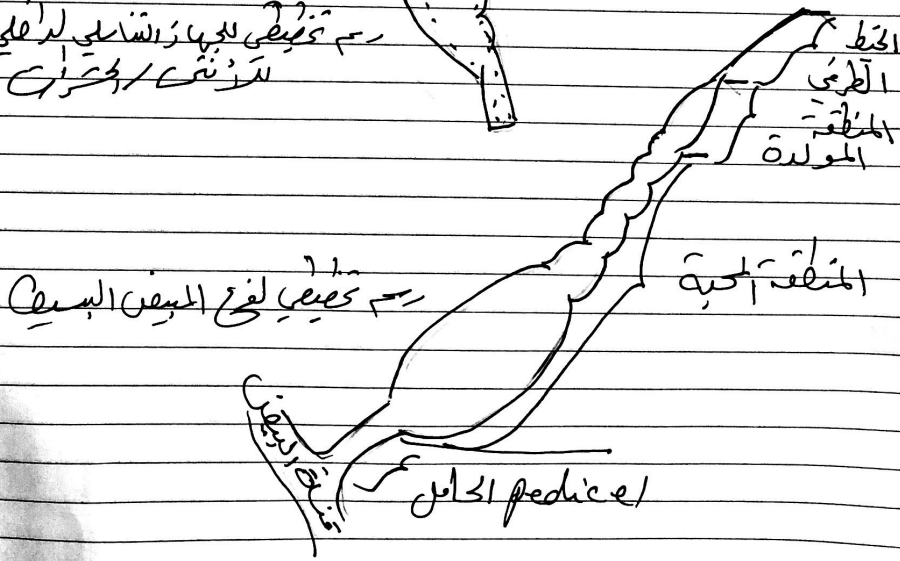 رسم تخطيطي للجهاز التناسلي الداخلي
للأنثى / الحشرات
الخيط
الطرفي
المنطقة
المولدة
المنطقة المحية
رسم تخطيطي لفرع المبيض البسيط
قناة المبيض
الحامل pedicel